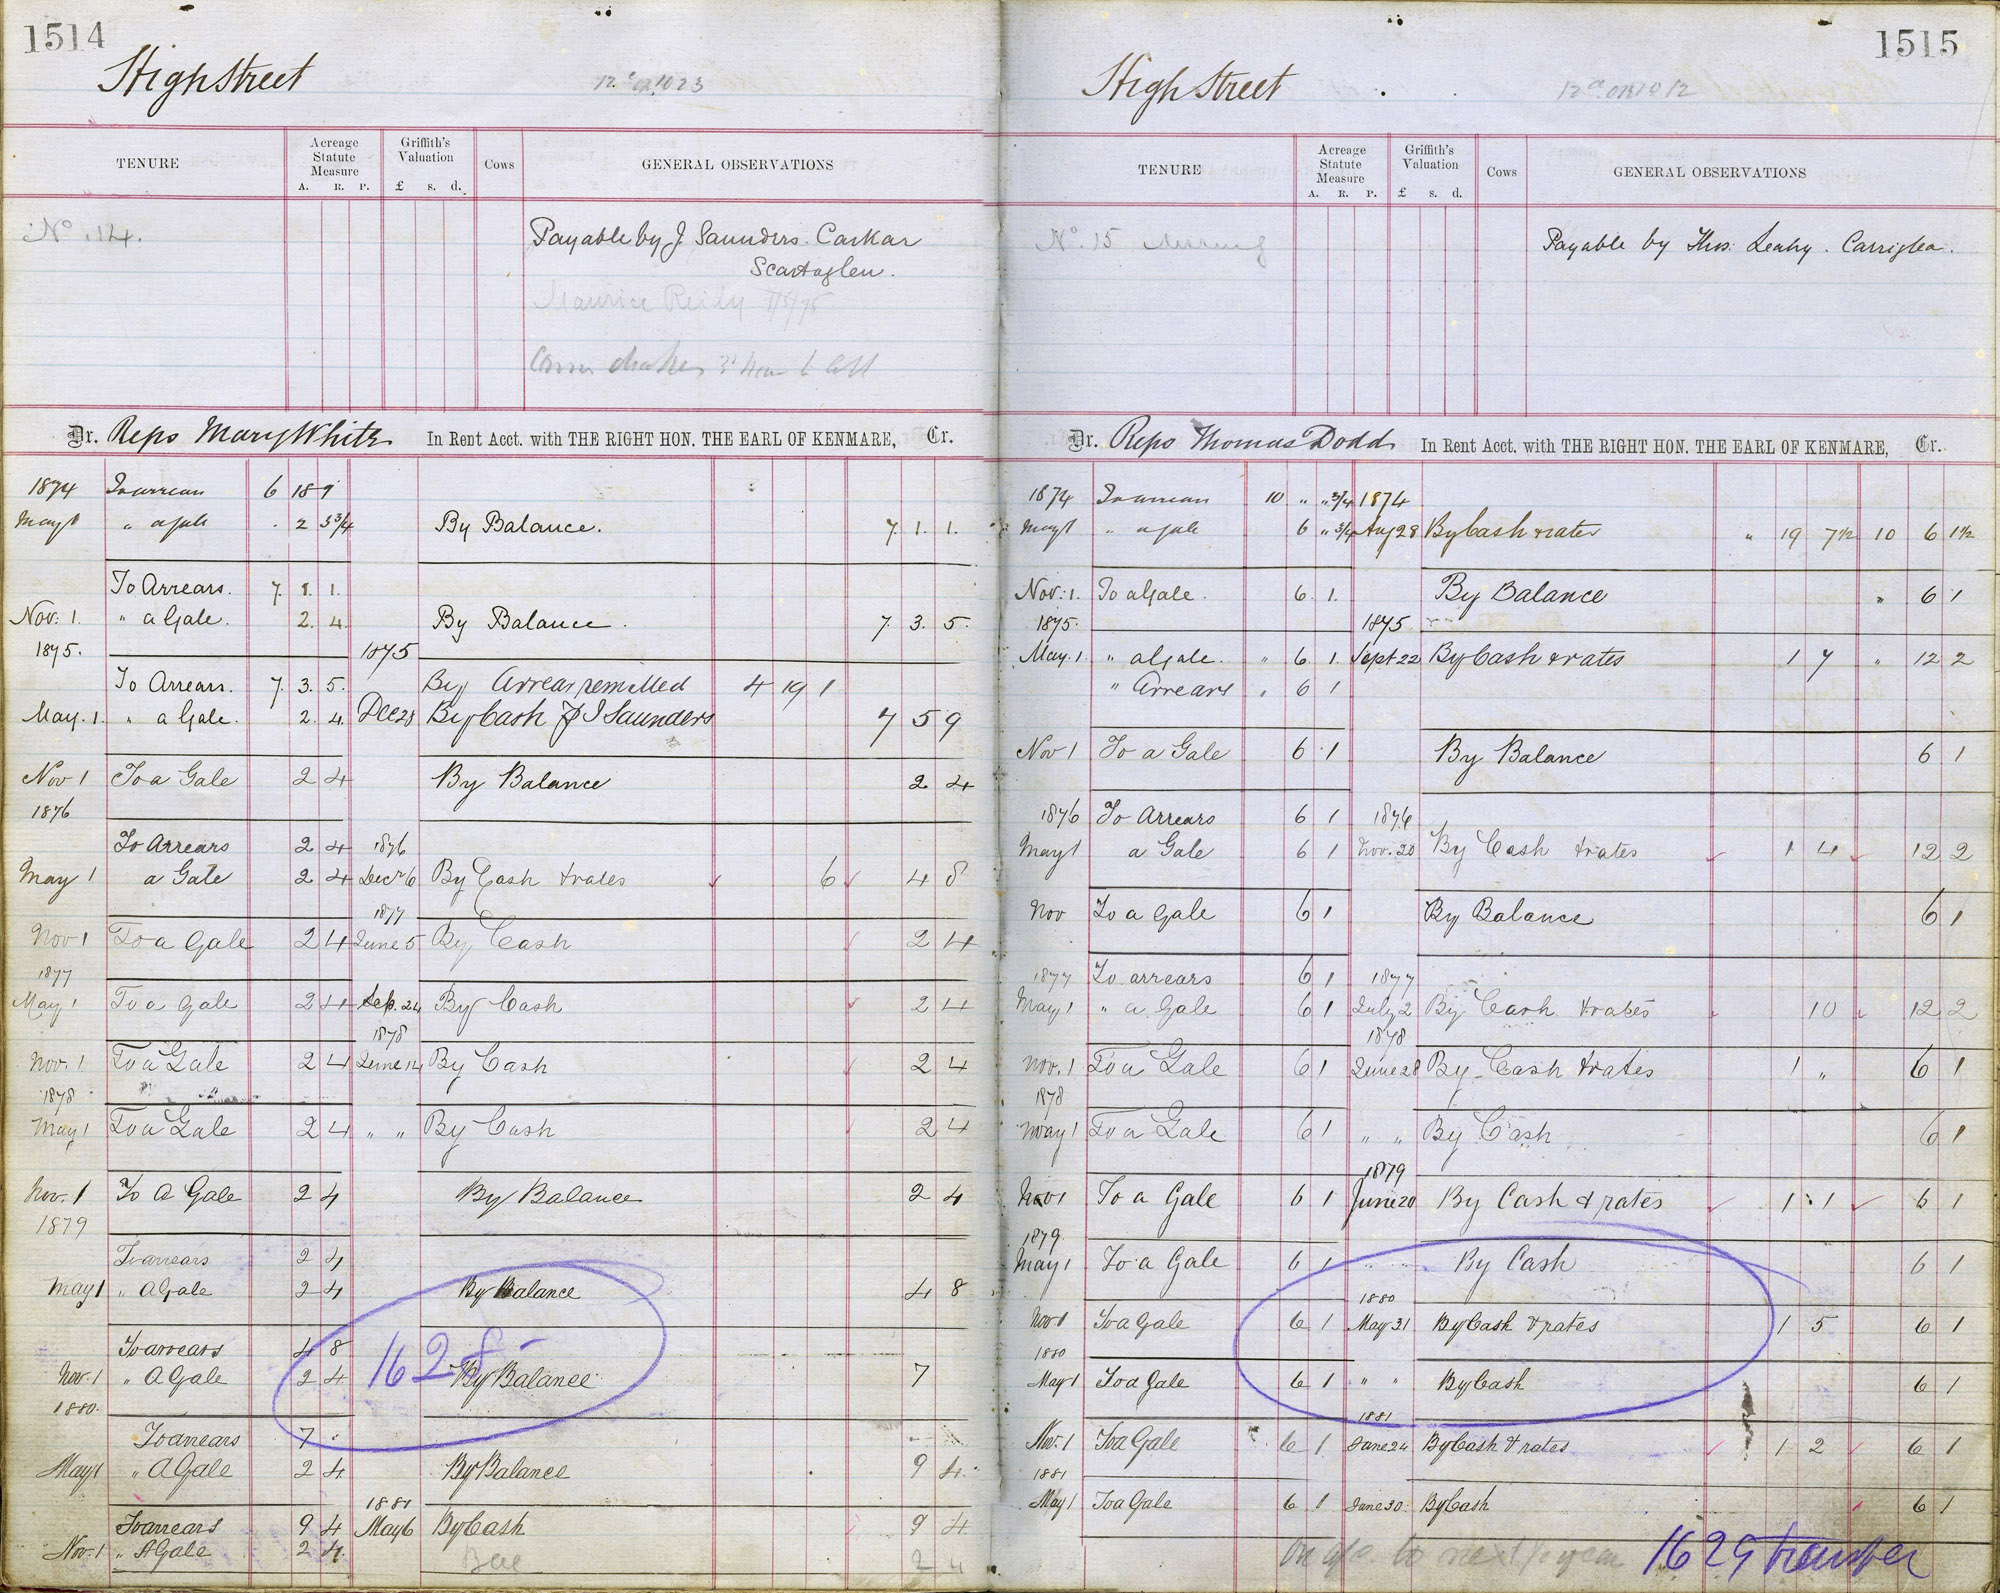 1514
High Street
12 on 1023
TENURE
Acreage Statute Measure
A. R. P.
Griffith's Valuation
£ s. d.
Cows
GENERAL OBSERVATIONS
No. 14.
Payable by J. Saunders. Carkar
Scartaglen.
Maurice Reidy
Dr. Reps Mary White In Rent Acct. with THE RIGHT HON. THE EARL OF KENMARE, Cr.
1874 To arrears 6 18 9
May 1 " a gale . 2 3 3/4 By Balance. 7. 1. 1.
To Arrears. 7. 1. 1.
Nov: 1. " a Gale. 2. 4. By Balance. 7. 3. 5.
1875. 1875
To Arrears. 7. 3. 5. By Arrear remitted 4 19 1
May. 1. " a Gale. 2. 4. Dec 28 By Cash J Saunders 7 5 9
Nov 1 To a Gale 2 4 By Balance 2 4
1876
To Arrears 2 4 1876
May 1 a Gale 2 4 Decr 6 By Cash & rates 6 4 8
1877
Nov 1 To a Gale 2 4 June 5 By Cash 2 4
1877
May 1 To a Gale 2 4 Sep. 24 By Cash 2 4
1878
Nov. 1 To a Gale 2 4 June 14 By Cash 2 4
1878
May 1 To a Gale 2 4 " " By Cash 2 4
Nov. 1 To A Gale 2 4 By Balance 2 4
1879
To arrears 2 4
May 1 " A Gale 2 4 By Balance 4 8
To arrears 4 8
1628
Nov. 1 " A Gale 2 4 By Balance 7
1880.
To arrears 7 .
May 1 " A Gale 2 4 By Balance 9 4.
1881
To arrears 9 4 May 6 By Cash 9 4
Nov. 1 " A Gale 2 4. Bal 2 4
1515
High Street
TENURE
Acreage Statute Measure
A. R. P.
Griffith's Valuation
£ s. d.
Cows
GENERAL OBSERVATIONS
No. 15
Payable by Thos. Leahy. Carriglea.
Dr. Reps Thomas Dodd In Rent Acct. with THE RIGHT HON. THE EARL OF KENMARE, Cr.
1874 To arrears 10 " " 3/4 1874
May 1 " a gale 6 " 3/4 Aug 28 By Cash & rates " 19 7 1/2 10 6 1 1/2
Nov: 1. To a Gale. 6. 1. By Balance " 6 1
1875. 1875
May. 1. " a Gale. " 6 1. Sept 22 By Cash & rates 1 7 " 12 2
" Arrears " 6 1
Nov 1 To a Gale 6 1 By Balance 6 1
1876 To Arrears 6 1 1876
May 1 a Gale 6 1 Nov. 20 By Cash & rates 1 4 12 2
Nov To a Gale 6 1 By Balance 6 1
1877 To arrears 6 1 1877
May 1 " a Gale 6 1 July 2 By Cash & rates 10 12 2
1878
Nov. 1 To a Gale 6 1 June 28 By Cash & rates 1 " 6 1
1878
May 1 To a Gale 6 1 " " By Cash 6 1
1879
Nov 1 To a Gale 6 1 June 20 By Cash & rates 1 1 6 1
1879
May 1 To a Gale 6 1 " " By Cash 6 1
1880
Nov 1 To a Gale 6 1 May 31 By Cash & rates 1 5 6 1
1880
May 1 To a Gale 6 1 " " By Cash 6 1
1881
Nov. 1 To a Gale 6 1 June 24 By Cash & rates 1 2 6 1
1881
May 1 To a Gale 6 1 June 30 By Cash 6 1
to next year 1629 transfer